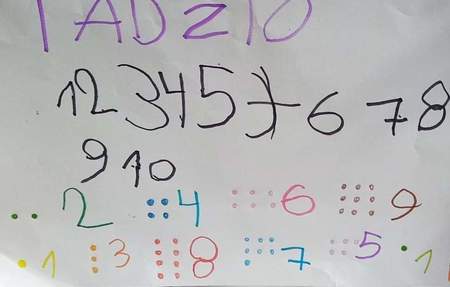 TADZIO
12345
6 7 8
9 10
2 4 6 9
1 3 8 7 5 1